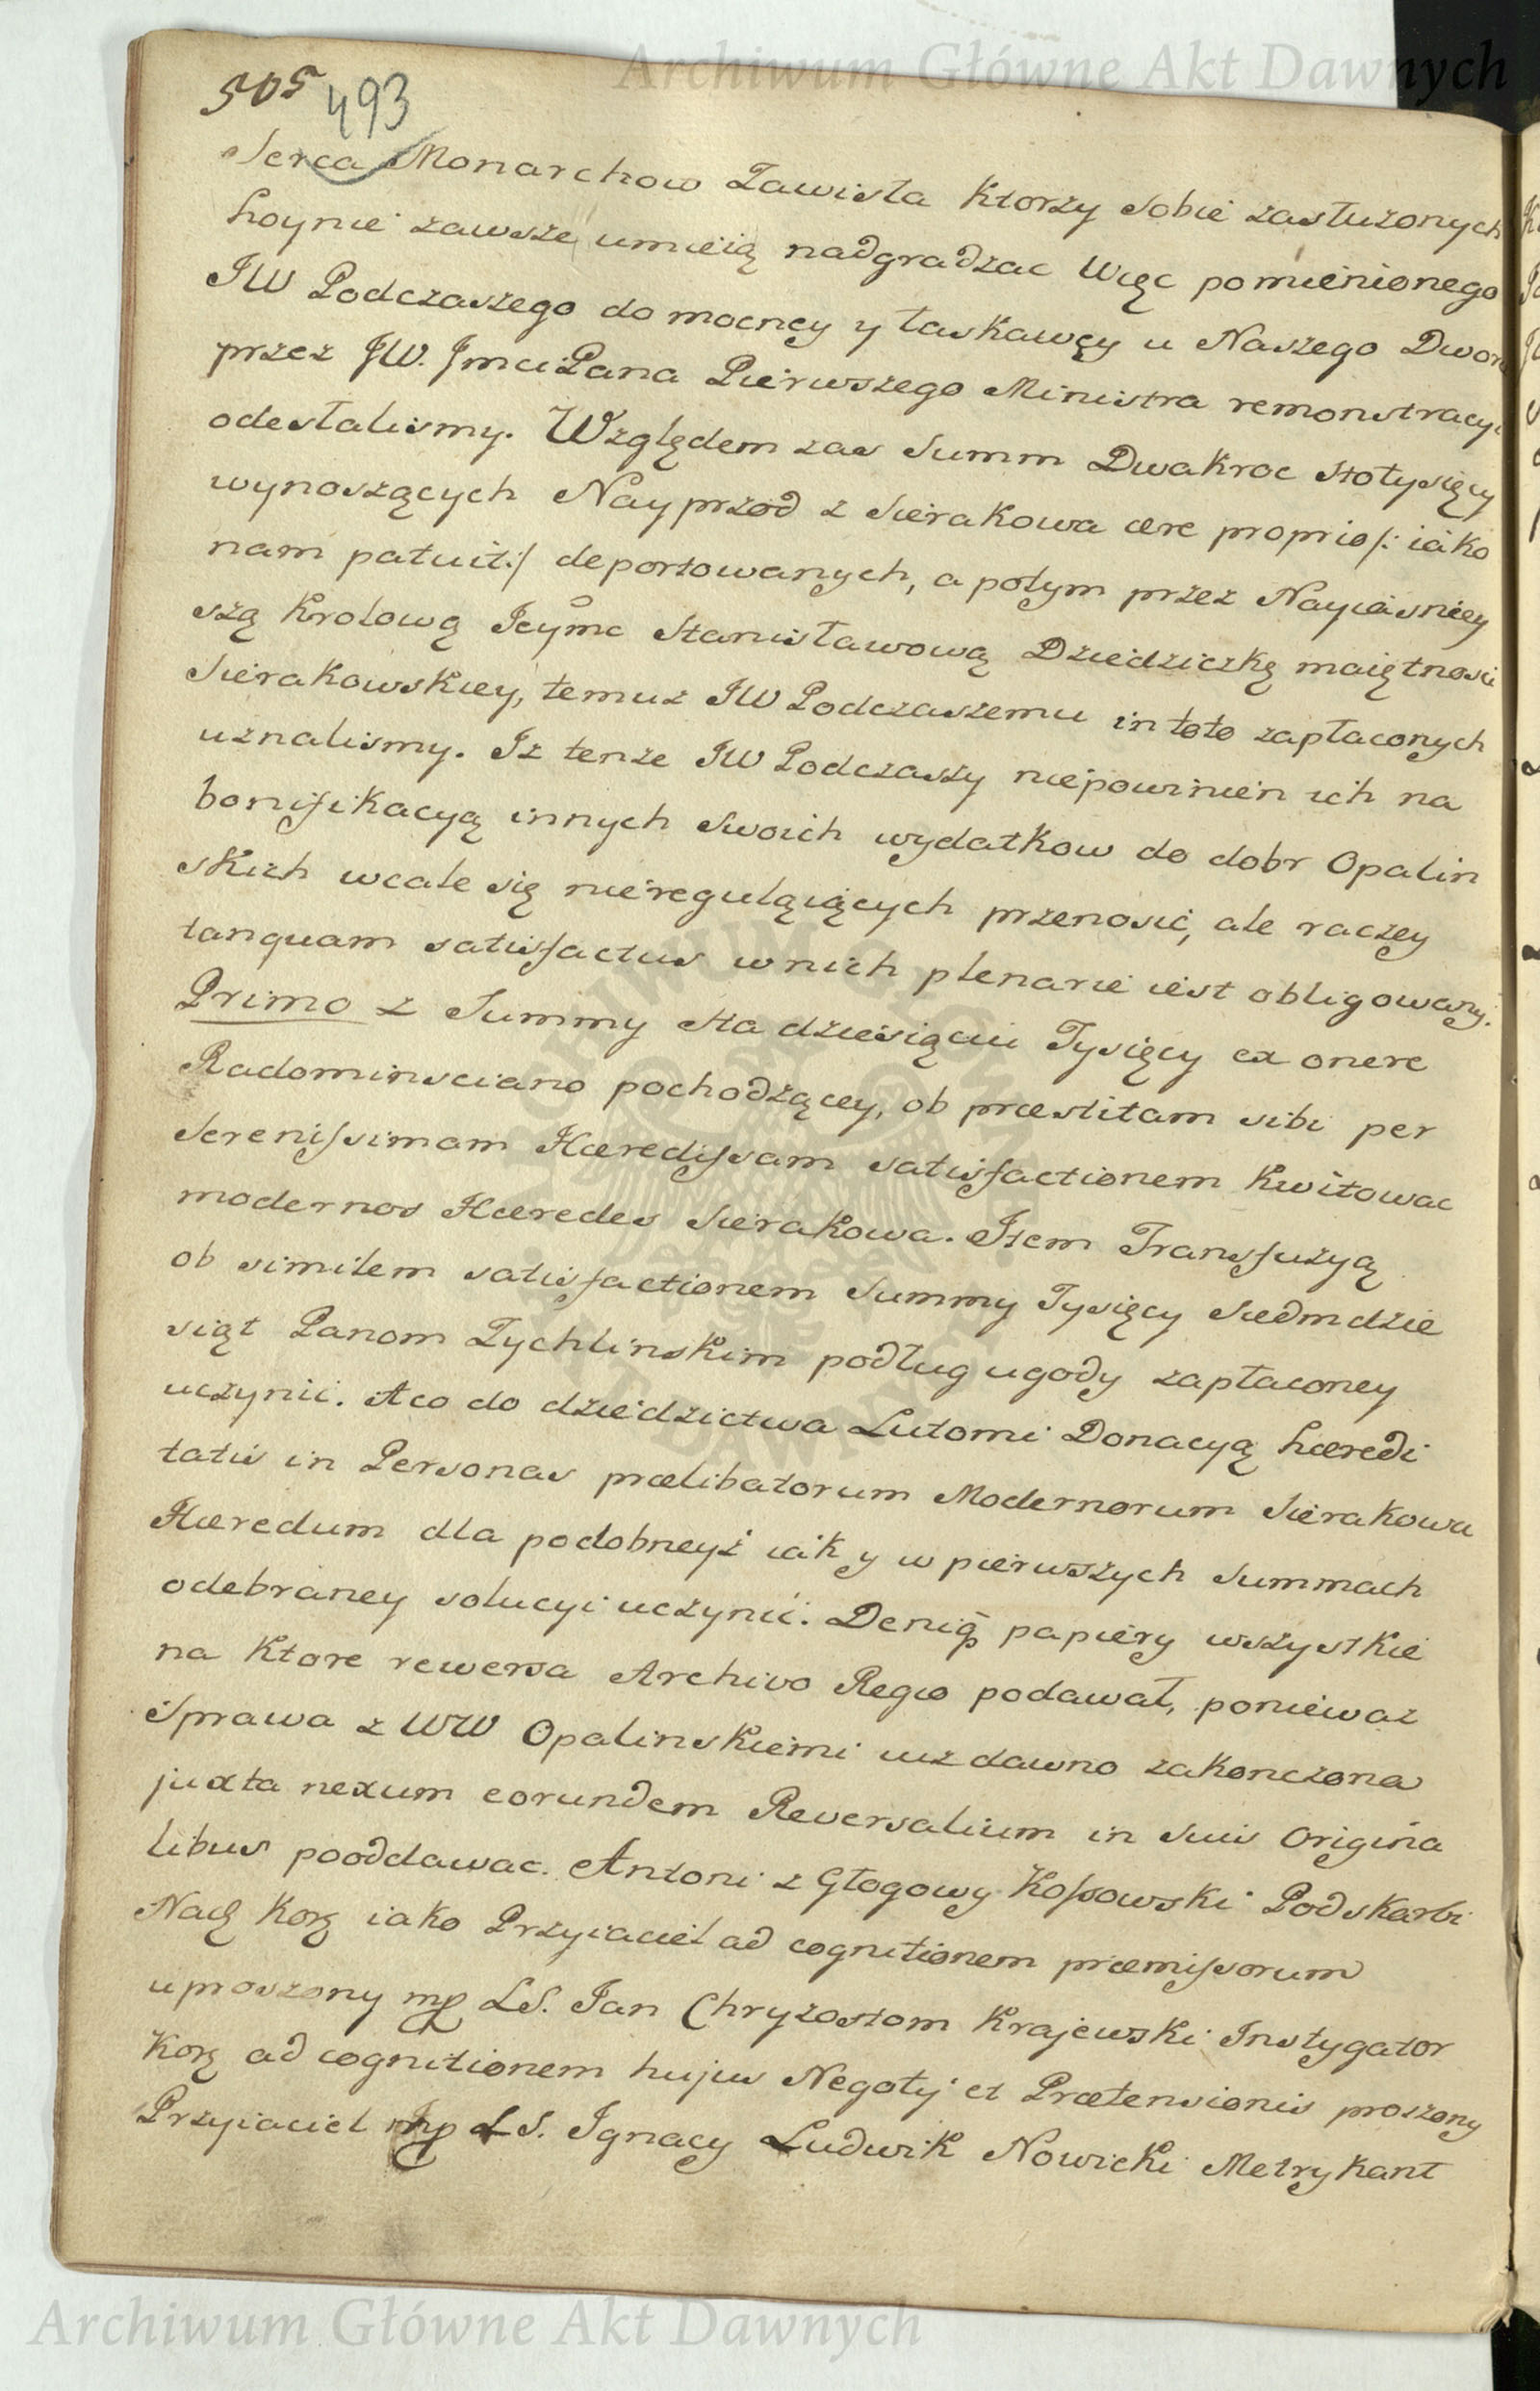 Archiwum Główne Akt Dawnych
505 493
Serca Monarchow Zawisła Ktorzy sobie zasłużonych
hoynie zawsze umieią nadgradzac Więc pomienionego
JW Podczaszego do mocney y łaskawęy u Naszego Dworu
przez JW. Jmci Pana Pierwszego Ministra remonstracyi
odesłalismy. Względem zas Summ Dwakroc stotysięcy
wynoszących Nayprzod z Sierakowa ære proprio /: iako
nam patuit :/ deportowanych, a potym przez Nayiasniey
szą Krolową Jeymc Stanisławową Dziedziczkę maiętnosci
Sierakowskiey, temuz JW Podczaszemu in toto zapłaconych
uznalismy. Iz tenze JW Podczaszy niepowinien ich na
bonifikacyą innych swoich wydatkow do dobr Opalin
skich wcale się niereguląiących przenosić, ale raczey
tanquam satisfactus w nich plenarie iest obligowany.
Primo z Summy sta dziesiąciu Tysięcy ex onere
Radominsciano pochodzącey, ob præstitam sibi per
Serenissimam Hæredissam satisfactionem Kwitowac
modernos Hæredes Sierakowa. Item Transfuzyą
ob similem satisfactionem Summy Tysięcy Siedmdzie
siąt Panom Zychlinskim podług ugody zapłaconey
uczynić. A co do dziedzictwa Lutomi Donacyą hæredi
tatis in Personas prælibatorum Modernorum Sierakowa
Hæredum dla podobneyż iak y w pierwszych Summach
odebraney solucyi uczynić. Deniq papiery wszystkie
na Ktore rewersa Archivo Regio podawał, poniewaz
Sprawa z WW Opalinskiemi iuz dawno zakonczona
juxta nexum eorundem Reversalium in suis Origina
libus pooddawac. Antoni z Głogowy Kossowski Podskarbi
Nad Kor iako Przyiaciel ad cognitionem præmissorum
uproszony mp LS. Jan Chryzostom Krajewski Instygator
Kor ad cognitionem hujus Negotij et Prætensionis proszony
Przyiaciel mp LS. Ignacy Ludwik Nowicki Metrykant
Archiwum Główne Akt Dawnych